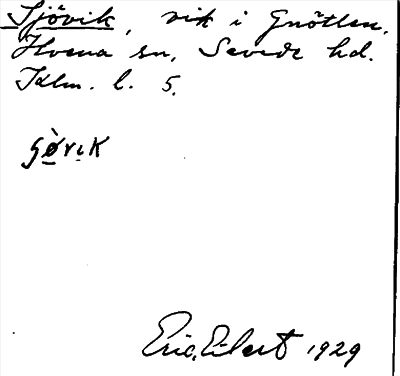 Sjövik, vik i Gnötlen.
Hvena sn, Sevede hd.
Klm. l. 5.
sø̀vik
Eric Eilert 1929